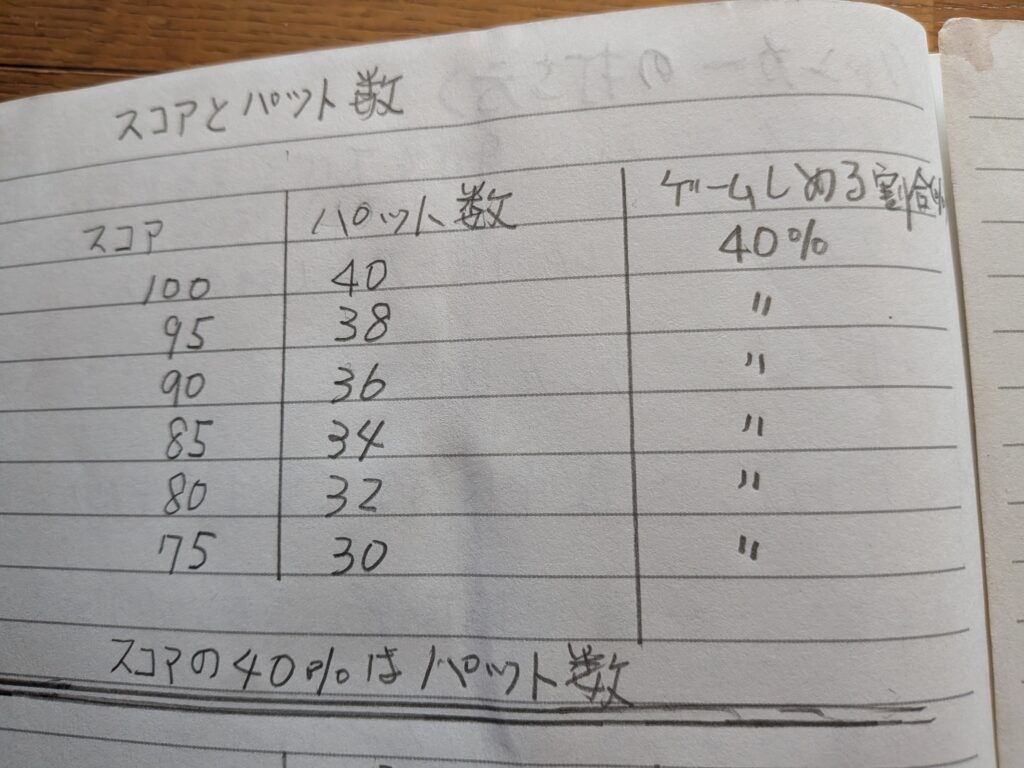 スコアとパット数
スコア パット数 ゲームしめる割合
100 40 40%
95 38 〃
90 36 〃
85 34 〃
80 32 〃
75 30 〃
スコアの40%はパット数